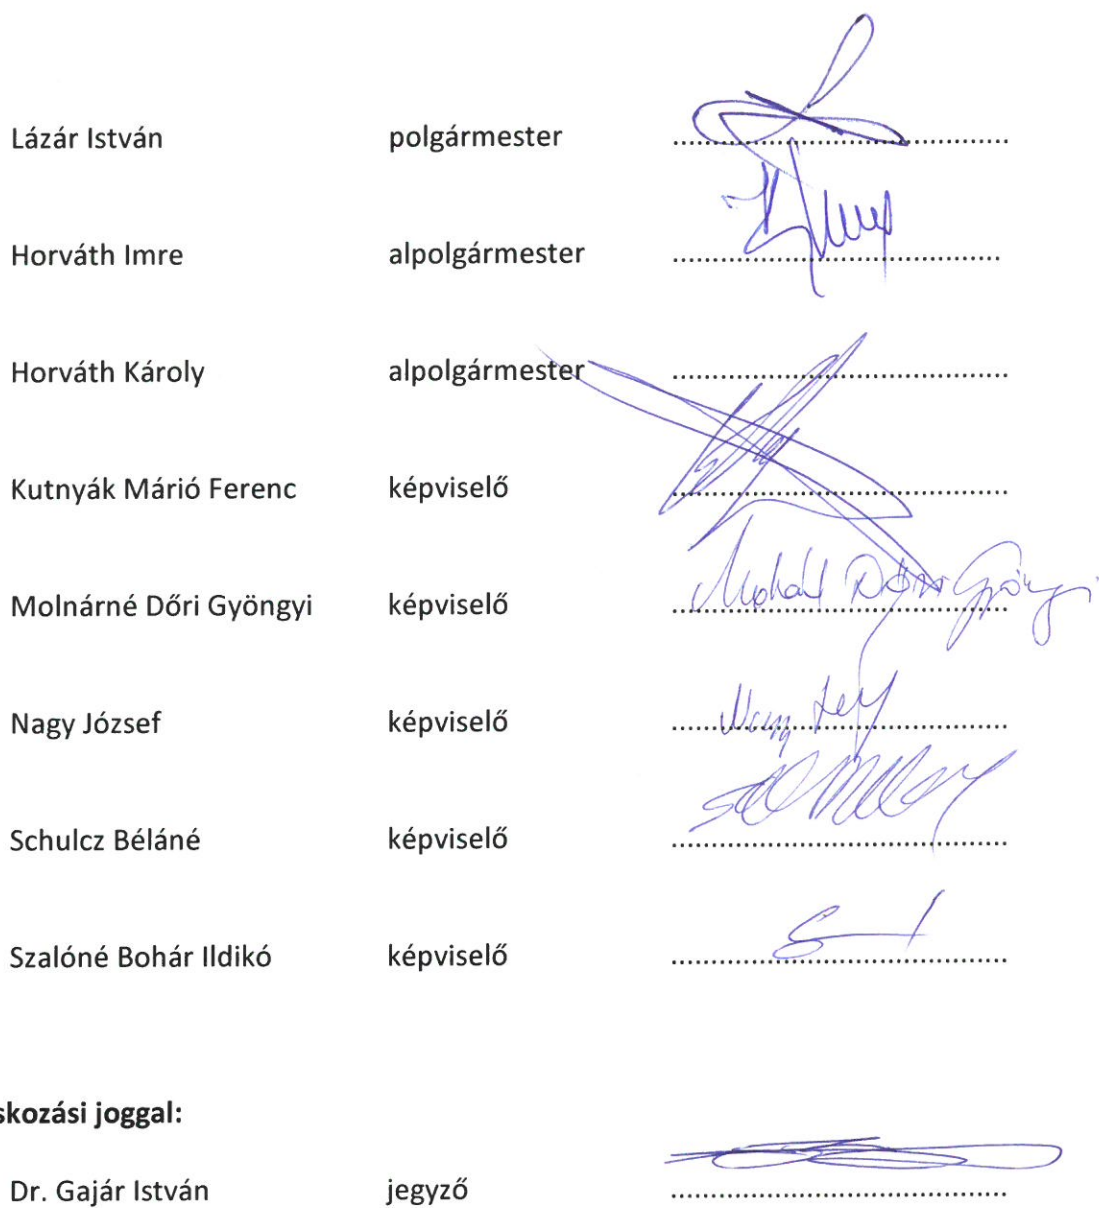 Lázár István polgármester ........................................
Horváth Imre alpolgármester ........................................
Horváth Károly alpolgármester ........................................
Kutnyák Márió Ferenc képviselő ........................................
Molnárné Dőri Gyöngyi képviselő ........................................
Nagy József képviselő ........................................
Schulcz Béláné képviselő ........................................
Szalóné Bohár Ildikó képviselő ........................................
skozási joggal:
Dr. Gajár István jegyző ........................................